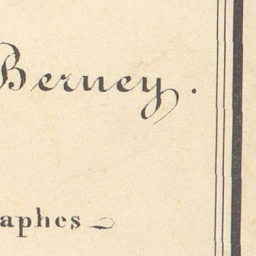 Berney.
aphes